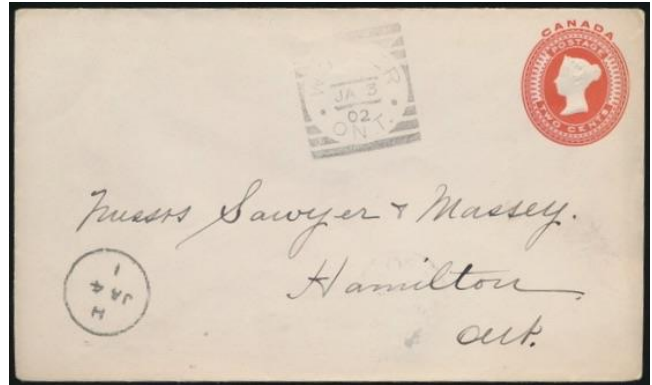 CANADA
POSTAGE
TWO CENTS
JA 3
02
ONT.
Messrs Sawyer & Massey.
Hamilton
Ont.
H
JA 4
1